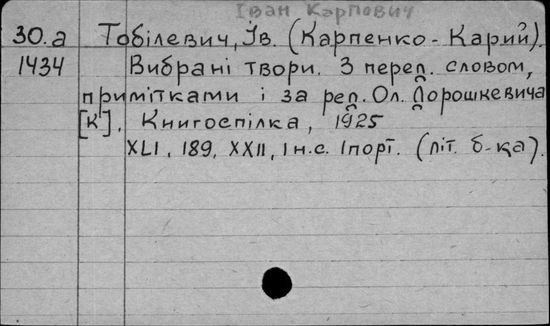 Іван Карпович
30.а Тобілевич, Ів. (Карпенко-Карий).
1434 Вибрані твори. З переп. словом,
примітками і за реп. Ол. Дорошкевича
[К]. Книгоспілка, 1925
XLI, 189, XXII, Ін.с. Іпорт. (літ. б-ка).